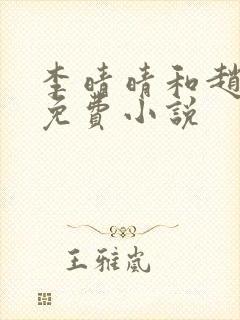 李晴晴和趙
免費小説
王雅嵐